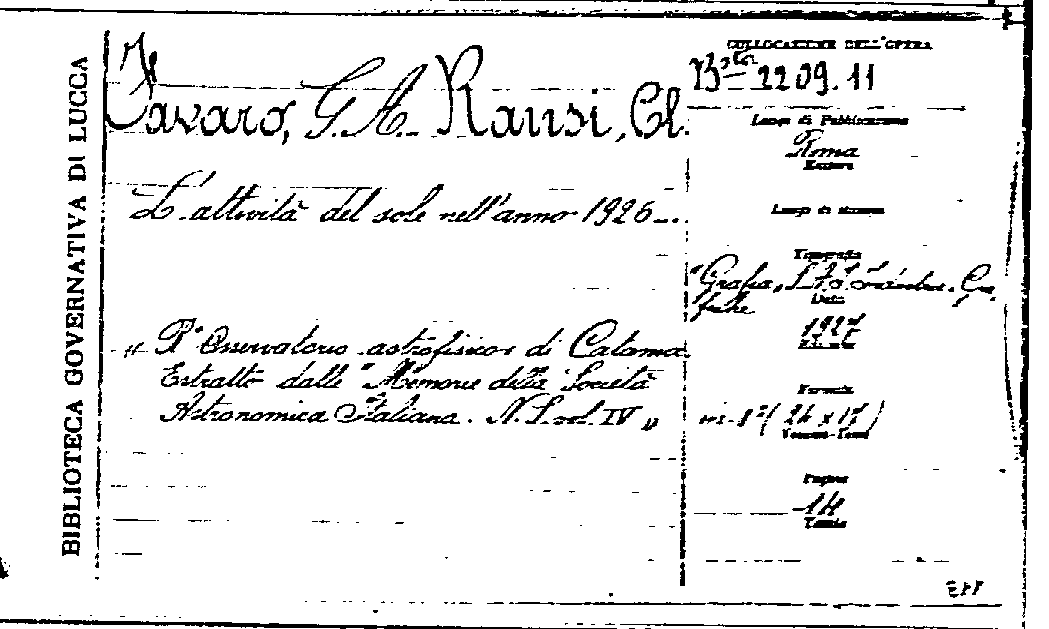 BIBLIOTECA GOVERNATIVA DI LUCCA
Favaro, G. A. Ransi, Cl.
L'attività del sole nell'anno 1926
" R° Osservatorio astrofisico di Catania
Estratto dalle "Memorie della Società
Astronomica Italiana. N. S. vol. IV "
COLLOCAZIONE DELL'OPERA
B.ta 2209.11
Luogo di Pubblicazione
Roma
Editore
Luogo di stampa
Tipografia
"Grafia" Gra
fiche
Data
1927
Formato
in-8° (24 x 17)
Pagine
14
Tavole